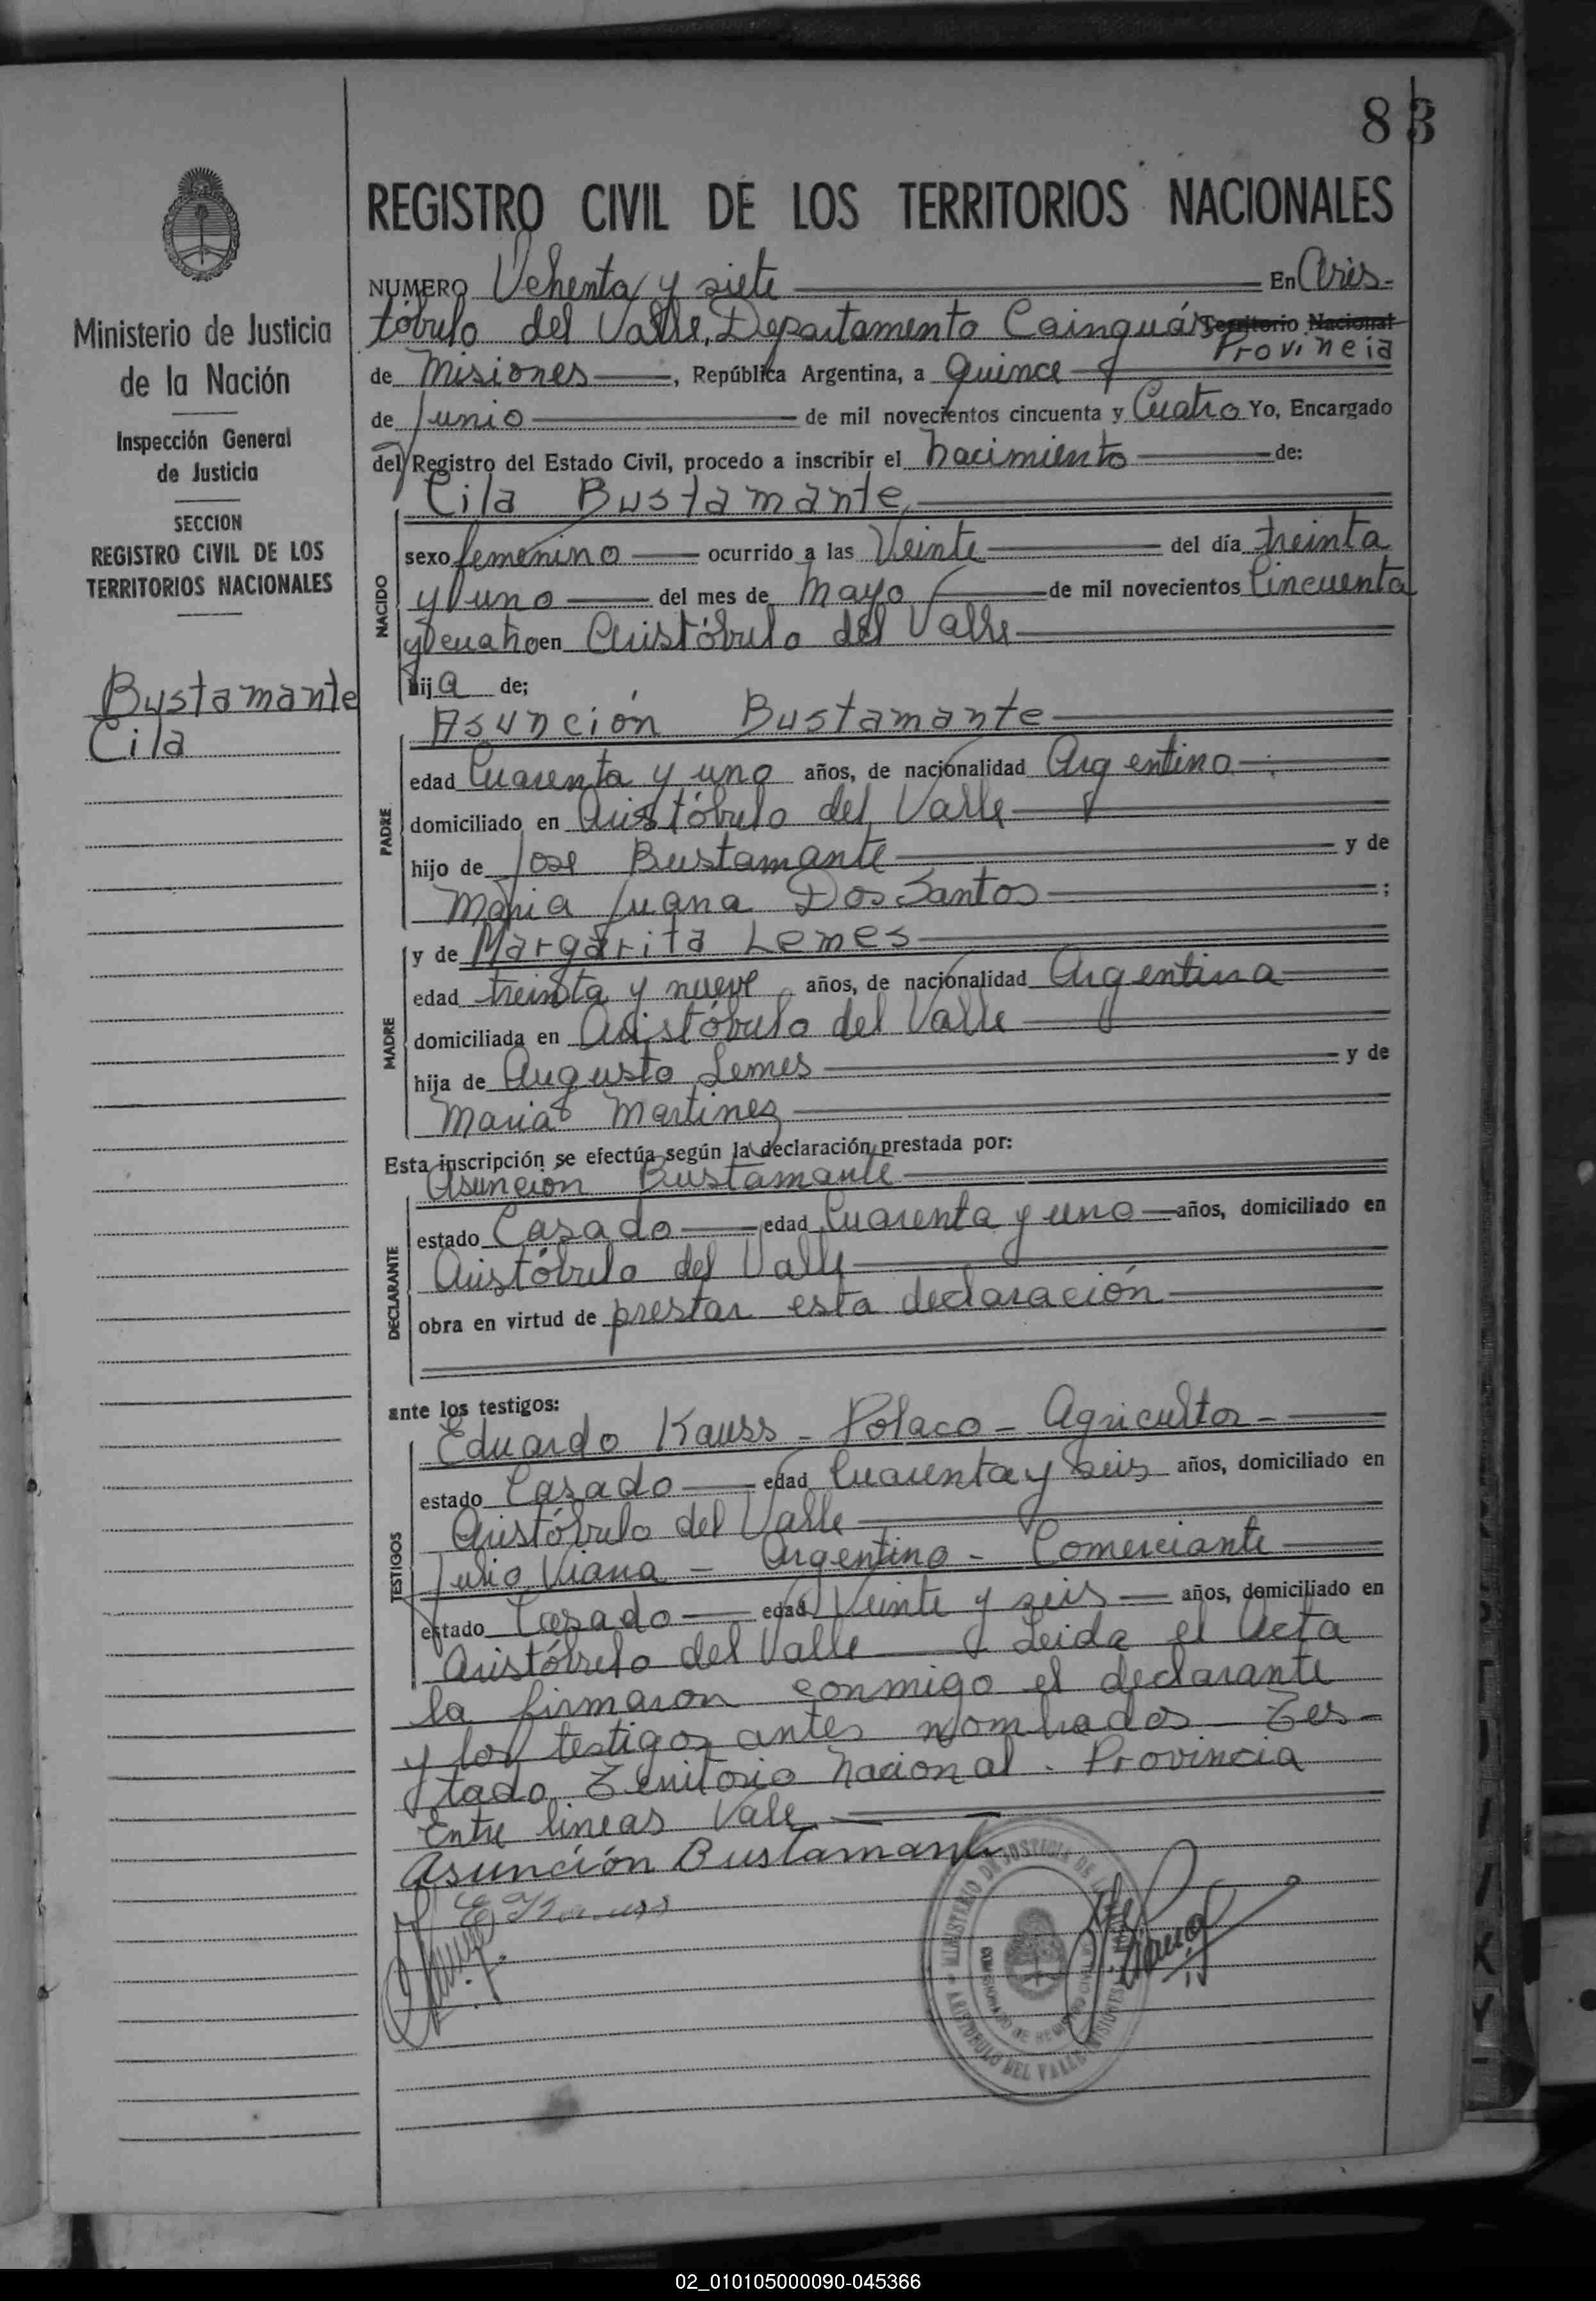 83
REGISTRO CIVIL DE LOS TERRITORIOS NACIONALES
NUMERO Ochenta y siete En Aris-
tóbulo del Valle, Departamento Cainguás Territorio Nacional
Provincia
de Misiones, República Argentina, a Quince
de Junio de mil novecientos cincuenta y Cuatro Yo, Encargado
del Registro del Estado Civil, procedo a inscribir el nacimiento de:
Cila Bustamante
sexo femenino ocurrido a las Veinte del día treinta
y uno del mes de Mayo de mil novecientos Cincuenta
y cuatro en Aristóbulo del Valle
hija de;
NACIDO
Asunción Bustamante
edad Cuarenta y uno años, de nacionalidad Argentino
domiciliado en Aristóbulo del Valle
hijo de Jose Bustamante y de
Maria Juana Dos Santos ;
PADRE
y de Margarita Lemes
edad treinta y nueve años, de nacionalidad Argentina
domiciliada en Aristóbulo del Valle
hija de Augusto Lemes y de
Maria Martinez
MADRE
Esta inscripción se efectúa según la declaración prestada por:
Asunción Bustamante
estado Casado edad Cuarenta y uno años, domiciliado en
Aristóbulo del Valle
obra en virtud de prestar esta declaración
DECLARANTE
ante los testigos:
Eduardo Kauss - Polaco - Agricultor -
estado Casado edad Cuarenta y seis años, domiciliado en
Aristóbulo del Valle
Julio Viana - Argentino - Comerciante
estado Casado edad Veinte y seis años, domiciliado en
Aristóbulo del Valle Leida el Acta
TESTIGOS
la firmaron conmigo el declarante
y los testigos antes nombrados Tes-
tado Territorio Nacional. Provincia
Entre lineas Vale
Asunción Bustamante
Ministerio de Justicia
de la Nación
Inspección General
de Justicia
SECCION
REGISTRO CIVIL DE LOS
TERRITORIOS NACIONALES
Bustamante
Cila
MINISTERIO DE JUSTICIA DE
ARISTOBULO DEL VALLE MISIONES
02_010105000090-045366